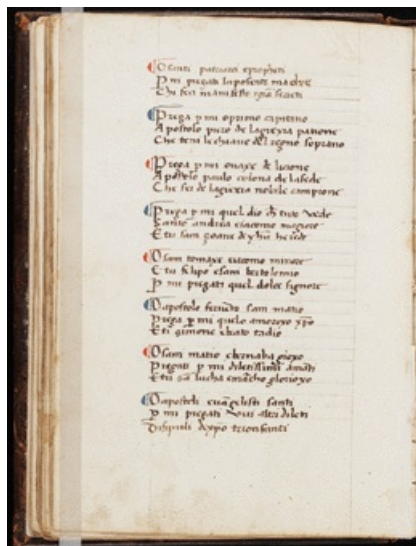 O santi patriarci e propheti
P mi pregati la possente madre
Che feci manifeste
Prega p mi o primo capitano
Apostolo piero de la giexia patrone
Che tene le chiaue del regno soprano
Prega p mi
Apostolo paulo colona de la fede
Che sei de la giexia nobile campione
Prega p mi quel dio ch tuto vede
Santo andrea e iacomo magiore
E tu sam zoane de yhu herede
O sam tomaxe e iacomo minore
E tu filipo e sam bertolomio
P mi pregati quel dolce signore
O apostolo sam matio
Prega p mi quelo amoroxo xpo
E ti simone e beato tadio
O sam matio e bernaba
Pregati p mi diletissimi amati
E tu sa lucha e marcho glorioxo
O apostoli e uangelisti santi
P mi pregati voui altri
Disipuli de xpo trionfanti